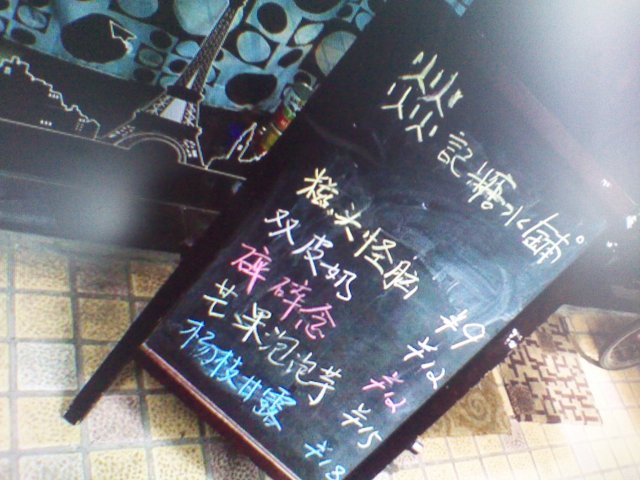 燚記糖水鋪
糍头怪脑 ¥9
双皮奶 ¥12
碎碎念 ¥12
芒果泡泡芋 ¥15
杨枝甘露 ¥18